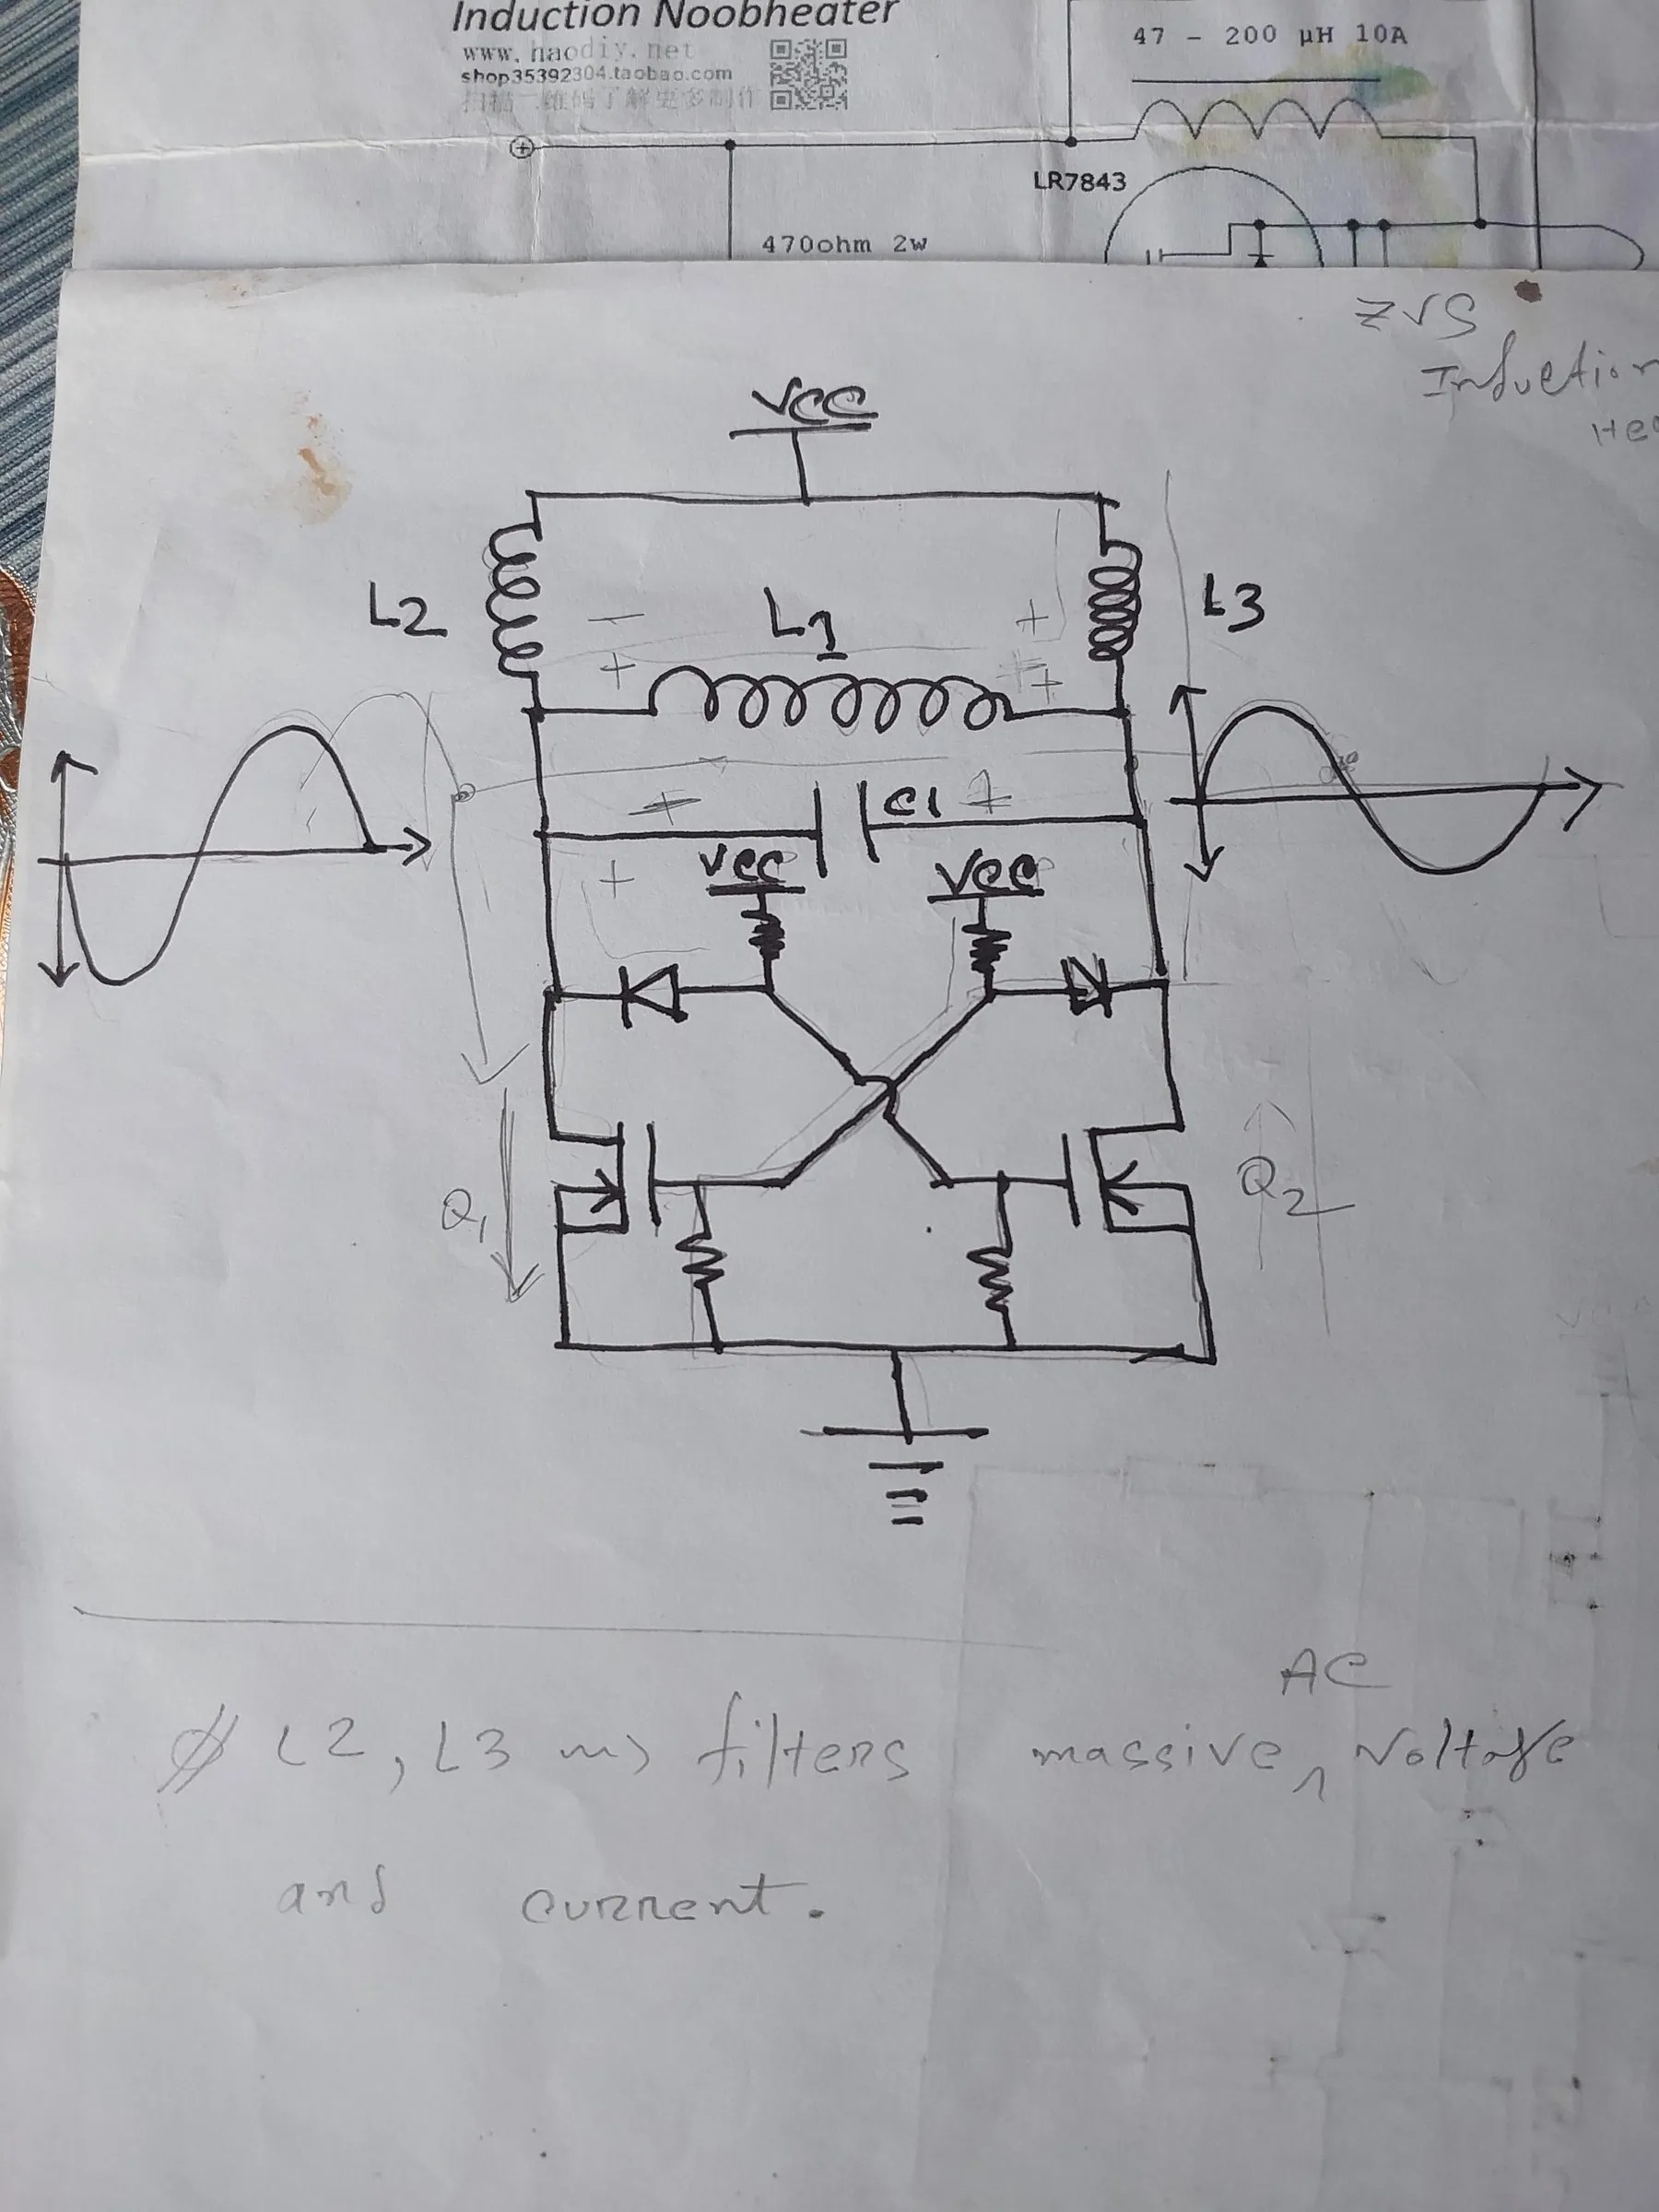 Induction Noobheater
www.haodiy.net
shop35392304.taobao.com
扫描二维码了解更多制作
47 - 200 µH 10A
LR7843
470ohm 2w
ZVS
Induction
Hea
VCC
L2
L1
L3
-
+
+
+
+
C1
+
+
VCC
VCC
Q1
Q2
AC
L2, L3 filters massive voltage
and current.